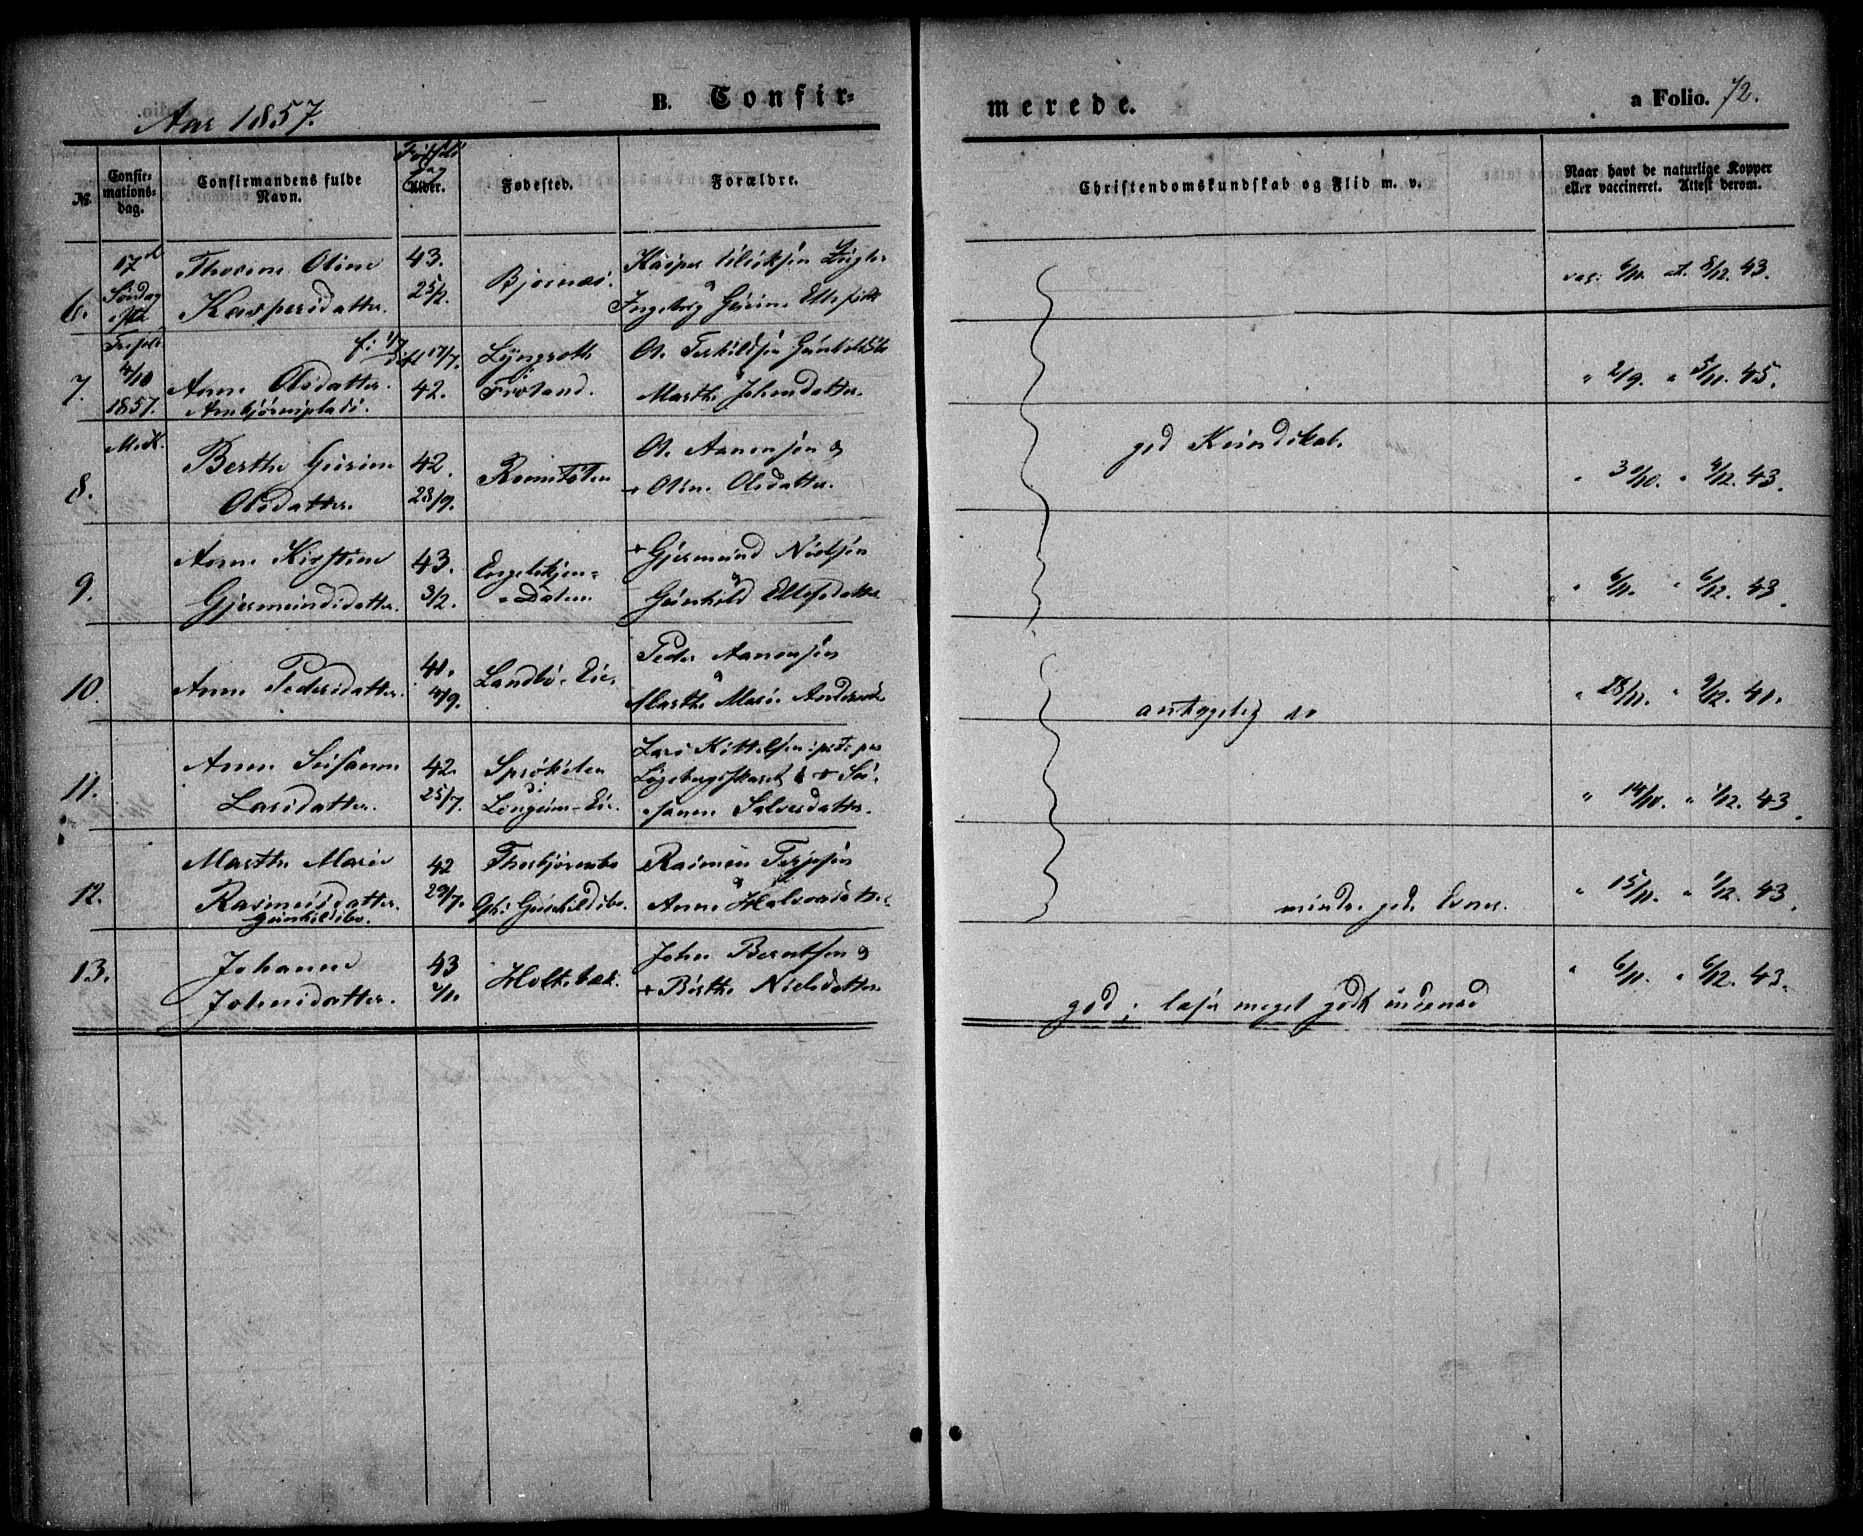 Aar 1857.
B. Confir-
merede.
a Folio. 72.
No.
Confir-
mations-
dag.
Confirmandens fulde
Navn.
Fødsels
Dag
Alder.
Fødested.
Forældre.
Christendomskundskab og Flid m. v.
Naar havt de naturlige Kopper
eller vaccineret. Attest derom.
6.
17d
Søndag
efter
Trefold
4/10
1857.
M.K.
Thorine Oline
Kaspersdatter.
43.
25/2.
Bjørnæs.
Kasper
Ingeborg Gurine
vac: 6/11. at. 8/12. 43.
7.
Anne Olsdatter.
Arnbjørnsplads.
f: 1/7
dbt 17/7.
42.
Lyngroth
i
Froland.
O. Terkildsen
Marthe Johnsdatter.
" 2/9. " 5/11. 45.
8.
Berthe Gurine
Olsdatter.
42.
28/9.
O. Aanonsen &
+ Oline Olsdatter.
god Kundskab.
" 30/10. " 4/12. 43.
9.
Anne Kirstine
Gjermundsdatter.
43.
3/2.
Engelskjen-
-dalen.
+ Gjermund Nielsen
&
Gunhild Ellefsdatter
" 6/11. " 6/12. 43.
10.
Anne Pedersdatter.
41.
4/9.
Landbø-Eie.
Peder Aanonsen
&
Marthe Marie
antagelig do
" 28/11. " 9/12. 41.
11.
Anne Susanne
Larsdatter.
42.
25/7.
Sprøkilen
i
Longum-Eie.
Lars Kittelsen
& + Su-
-sanne Salvesdatter.
" 14/10. " 1/12. 43.
12.
Marthe Marie
Rasmusdatter.
Gunhildsbo.
42
29/7.
Thorbjørnsbo
Opf: Gunhildsbo.
Rasmus Terjesen
&
Anne Halvorsdatter
mindre gode Evner.
" 15/11. " 1/12. 43.
13.
Johanne
Johnsdatter.
43
Holtebæk.
John Berntsen &
+ Birthe Nielsdatter
god; læser meget godt indenad
" 6/11. " 6/12. 43.